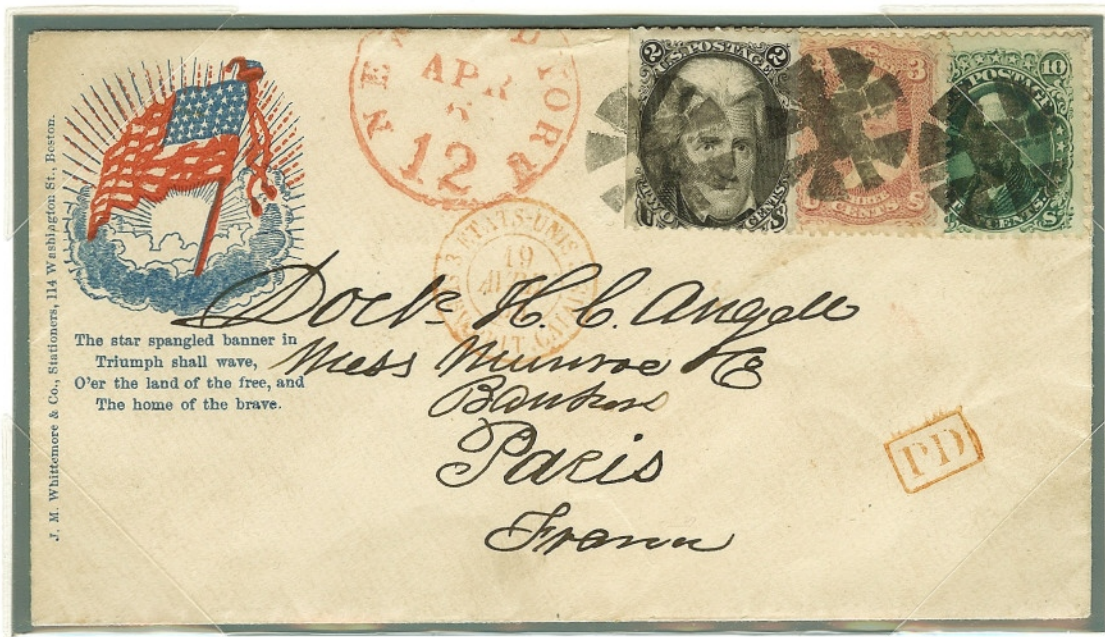 J. M. Whittemore & Co., Stationers, 114 Washington St., Boston.
The star spangled banner in
Triumph shall wave,
O'er the land of the free, and
The home of the brave.
NEW YORK
APR
12
2 U.S. POSTAGE 2
TWO CENTS
U.S. 3
THREE CENTS
10
POSTAGE
CENTS
ETATS-UNIS
19
CALAIS
Doctr H. C. Angell
Mess Munroe & Co
Bankers
Paris
France
PD